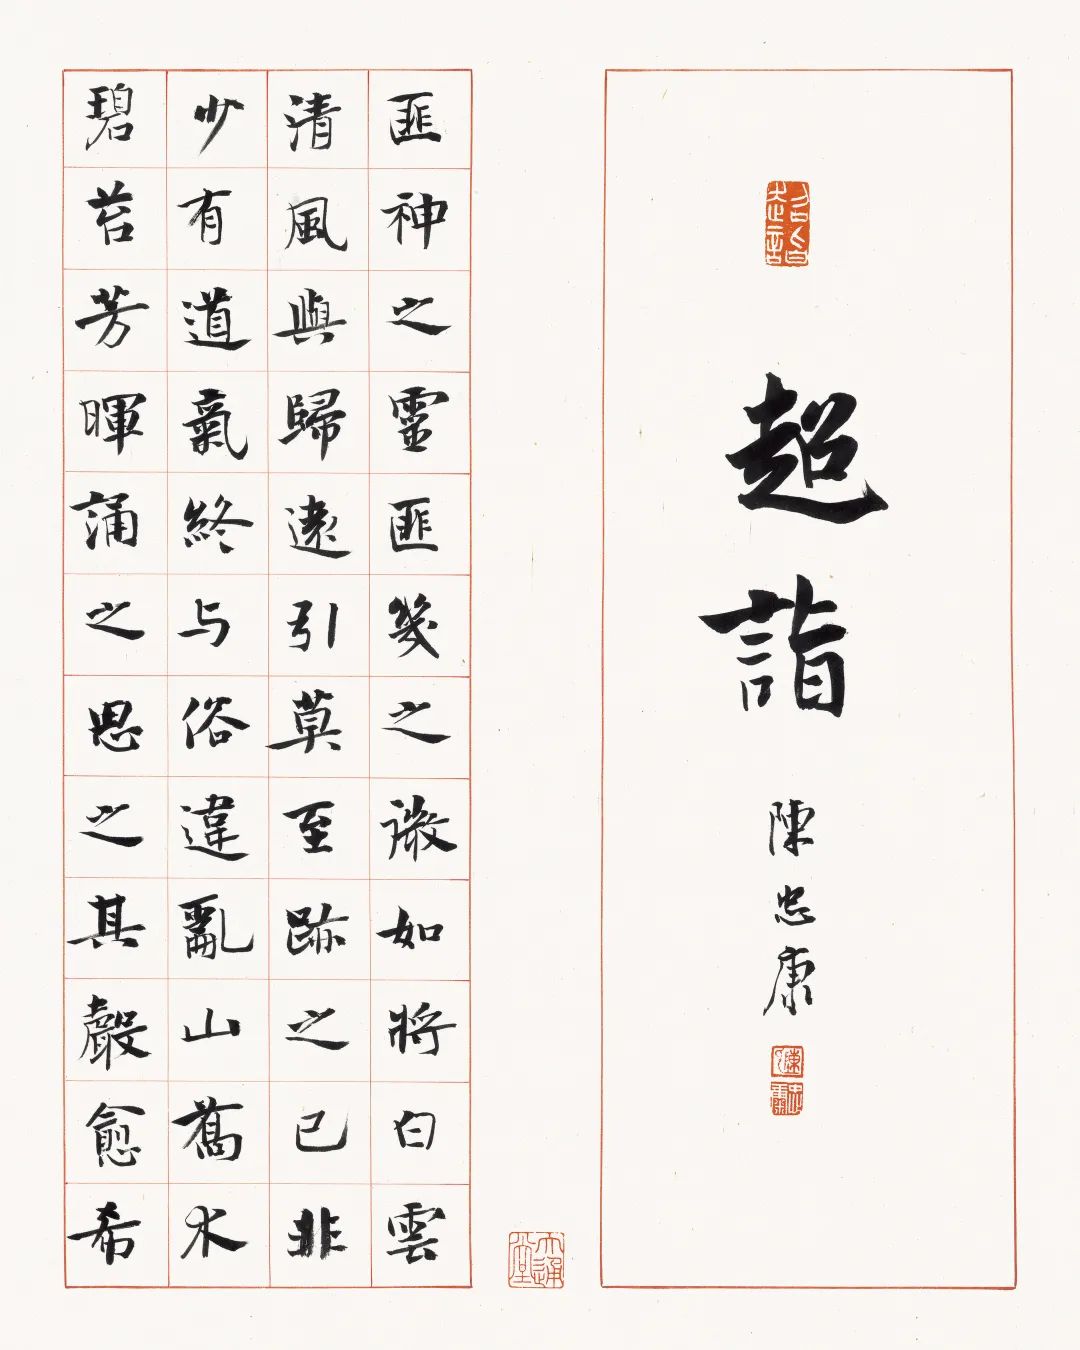 超詣
陳忠康
匪神之靈匪幾之微如將白雲
清風與歸遠引莫至跡之已非
少有道氣終与俗違亂山喬木
碧苔芳暉誦之思之其聲愈希